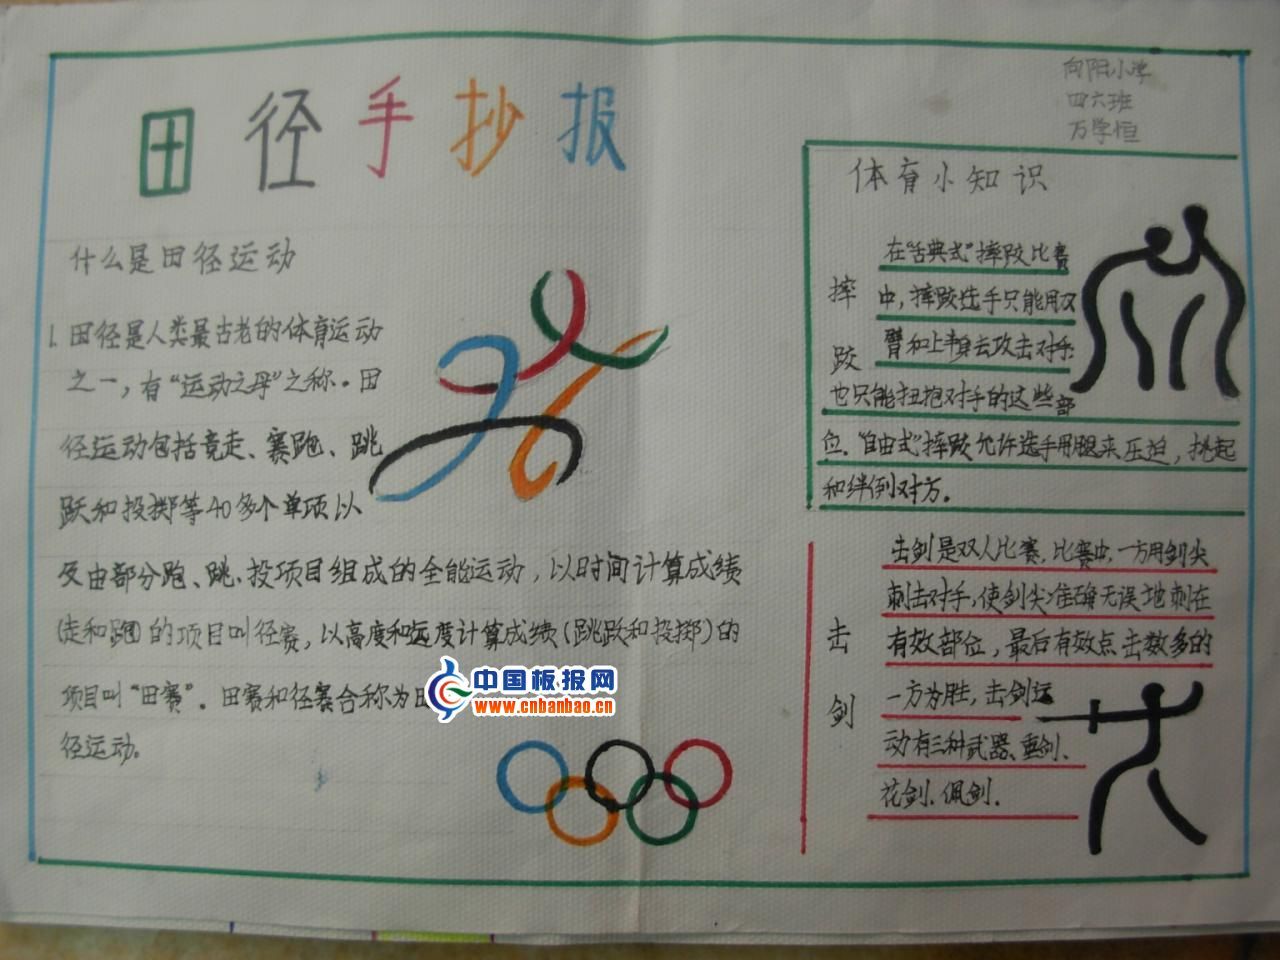 田径手抄报
向阳小学
四六班
万学恒
什么是田径运动
1. 田径是人类最古老的体育运动
之一，有“运动之母”之称。田
径运动包括竞走、赛跑、跳
跃和投掷等40多个单项以
及由部分跑、跳、投项目组成的全能运动，以时间计算成绩
(走和跑)的项目叫径赛，以高度和远度计算成绩(跳跃和投掷)的
项目叫“田赛”。田赛和径赛合称为田
径运动。
中国板报网
www.cnbanbao.cn
体育小知识
摔跤
在“古典式”摔跤比赛
中，摔跤选手只能用双
臂和上半身去攻击对手
也只能扭抱对手的这些部
位。“自由式”摔跤允许选手用腿来压迫，挑起
和绊倒对方。
击剑
击剑是双人比赛，比赛中，一方用剑尖
刺击对手，使剑尖准确无误地刺在
有效部位，最后有效点击数多的
一方为胜，击剑运
动有三种武器、重剑、
花剑、佩剑.